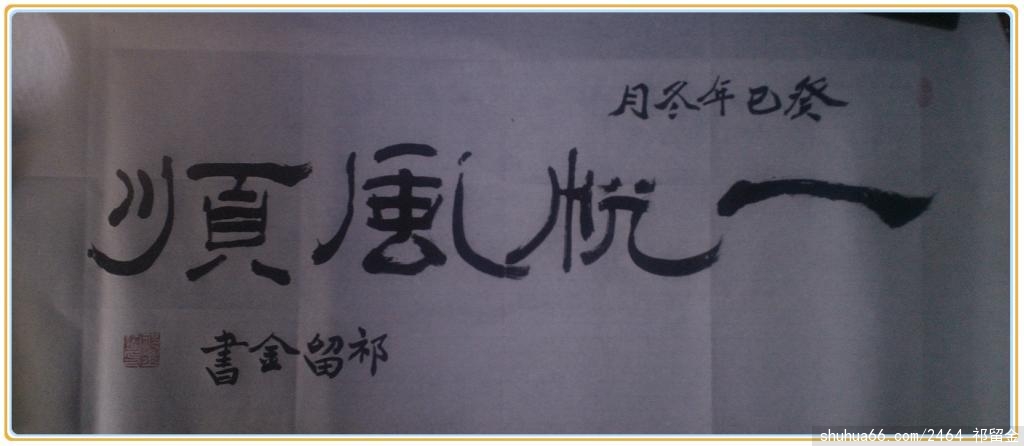 癸巳年冬月
一帆風順
祁留金書
shuhua66.com/2464 祁留金